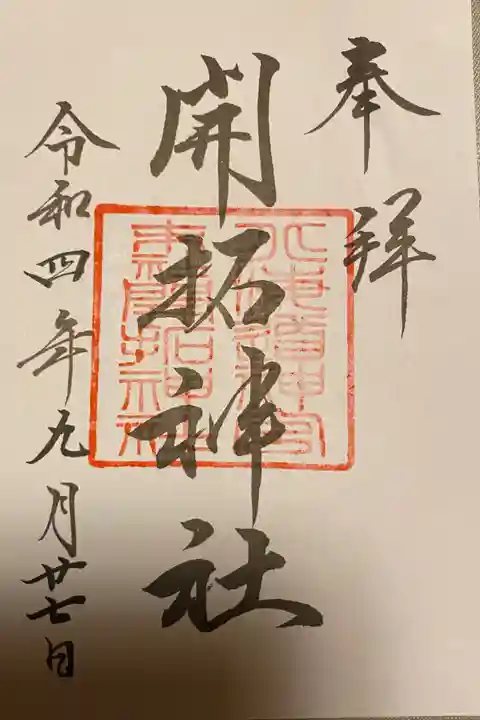 奉拝
開拓神社
北海道神宮
末社開拓神社
令和四年九月廿七日